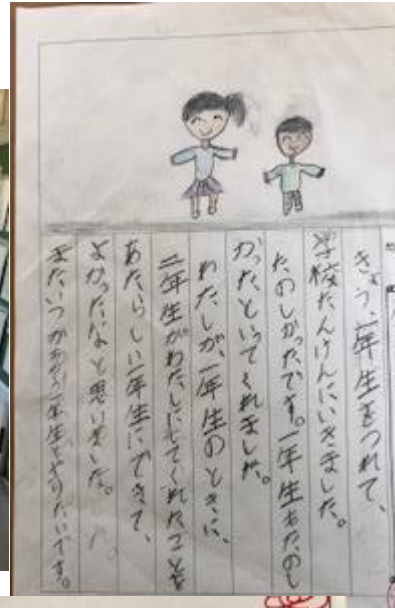 きょう、一年生をつれて、
学校たんけんにいきました。
たのしかったです。一年生もたのし
かったといってくれました。
わたしが、一年生のときに、
二年生がわたしにしてくれたことを
あたらしい一年生にできて、
よかったなと思いました。
またいつかあそう一年生とやりたいです。